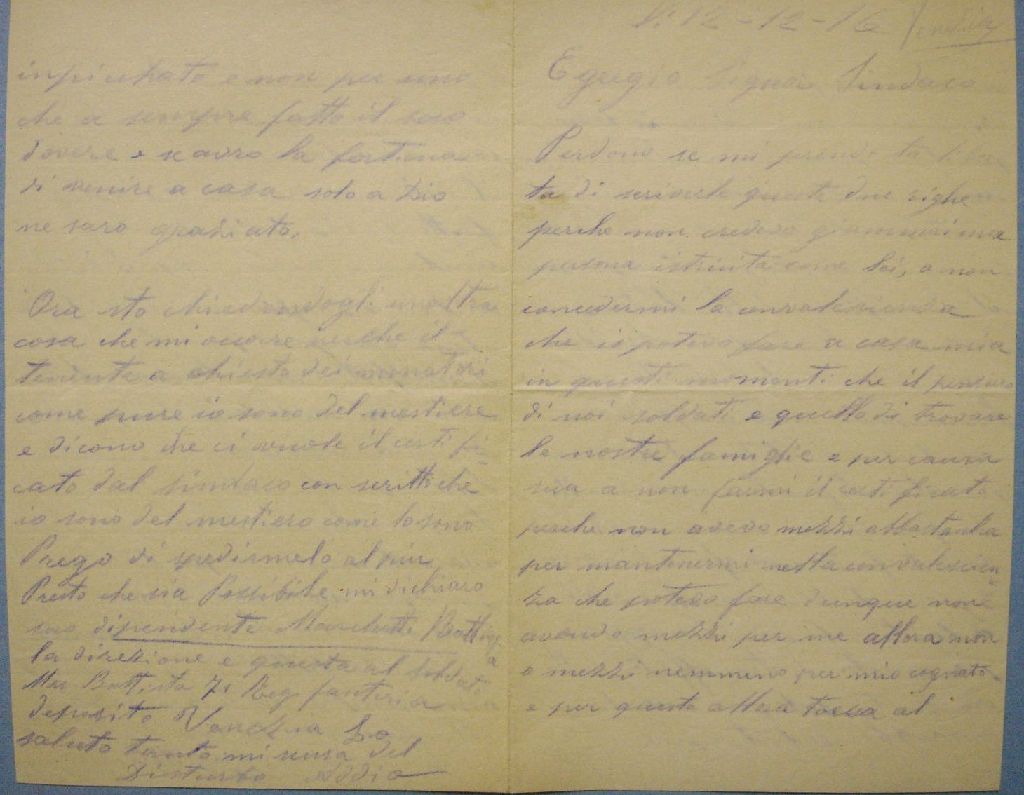 li 12-12-16
Egregio Signor Sindaco
Perdono se mi prendo la liber
ta di scriverle queste due righe
perche non credevo giammai una
persona istruita come Lei, a non
concedermi la convalescenza
che io potevo fare a casa mia
in questi momenti che il pensiero
di noi soldati e quello di trovare
le nostre famiglie e per causa
sua a non farmi il certificato
perche non avevo mezzi abbastanza
per mantenermi nella convalescen
za che potevo fare dunque non
avendo mezzi per me allora non
o mezzi nemmeno per mio cognato
e per questo allora tocca al
inpiegato e non per uno
che a sempre fatto il suo
dovere e se avro la fortuna
di venire a casa solo a Dio
ne saro graziato.
Ora sto chiedendogli unaltra
cosa che mi occore perche il
tenente a chiesto dei minatori
come pure io sono del mestiere
e dicono che ci vuole il certifi-
cato dal sindaco con scritti che
io sono del mestiero come lo sono
Prego di spedirmelo al piu
Presto che sia Possibile mi dichiaro
suo dipendente Battista
la direzione e questa al soldat
Batt,sta 71 Reg fanteria
deposito Venezia Lo
saluto tanto mi scusa del
Disturbo Addio